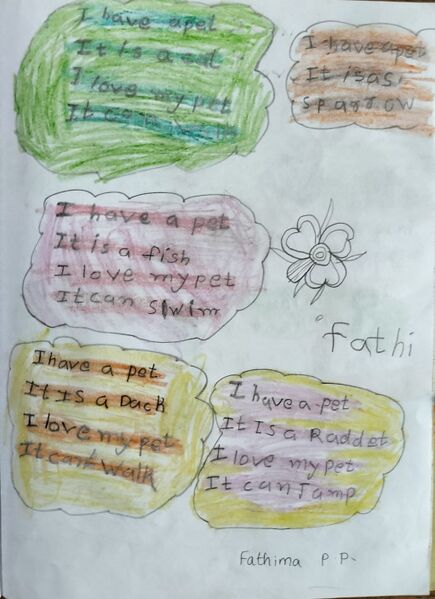 I have a pet
It is a cat
I love my pet
It can walk
I have a pet
It is as
sparrow
I have a pet
It is a fish
I love my pet
It can swim
fathi
I have a pet
It Is a Duck
I love my pet
It can walk
I have a pet
It Is a Raddet
I love my pet
It can Jamp
Fathima P P.